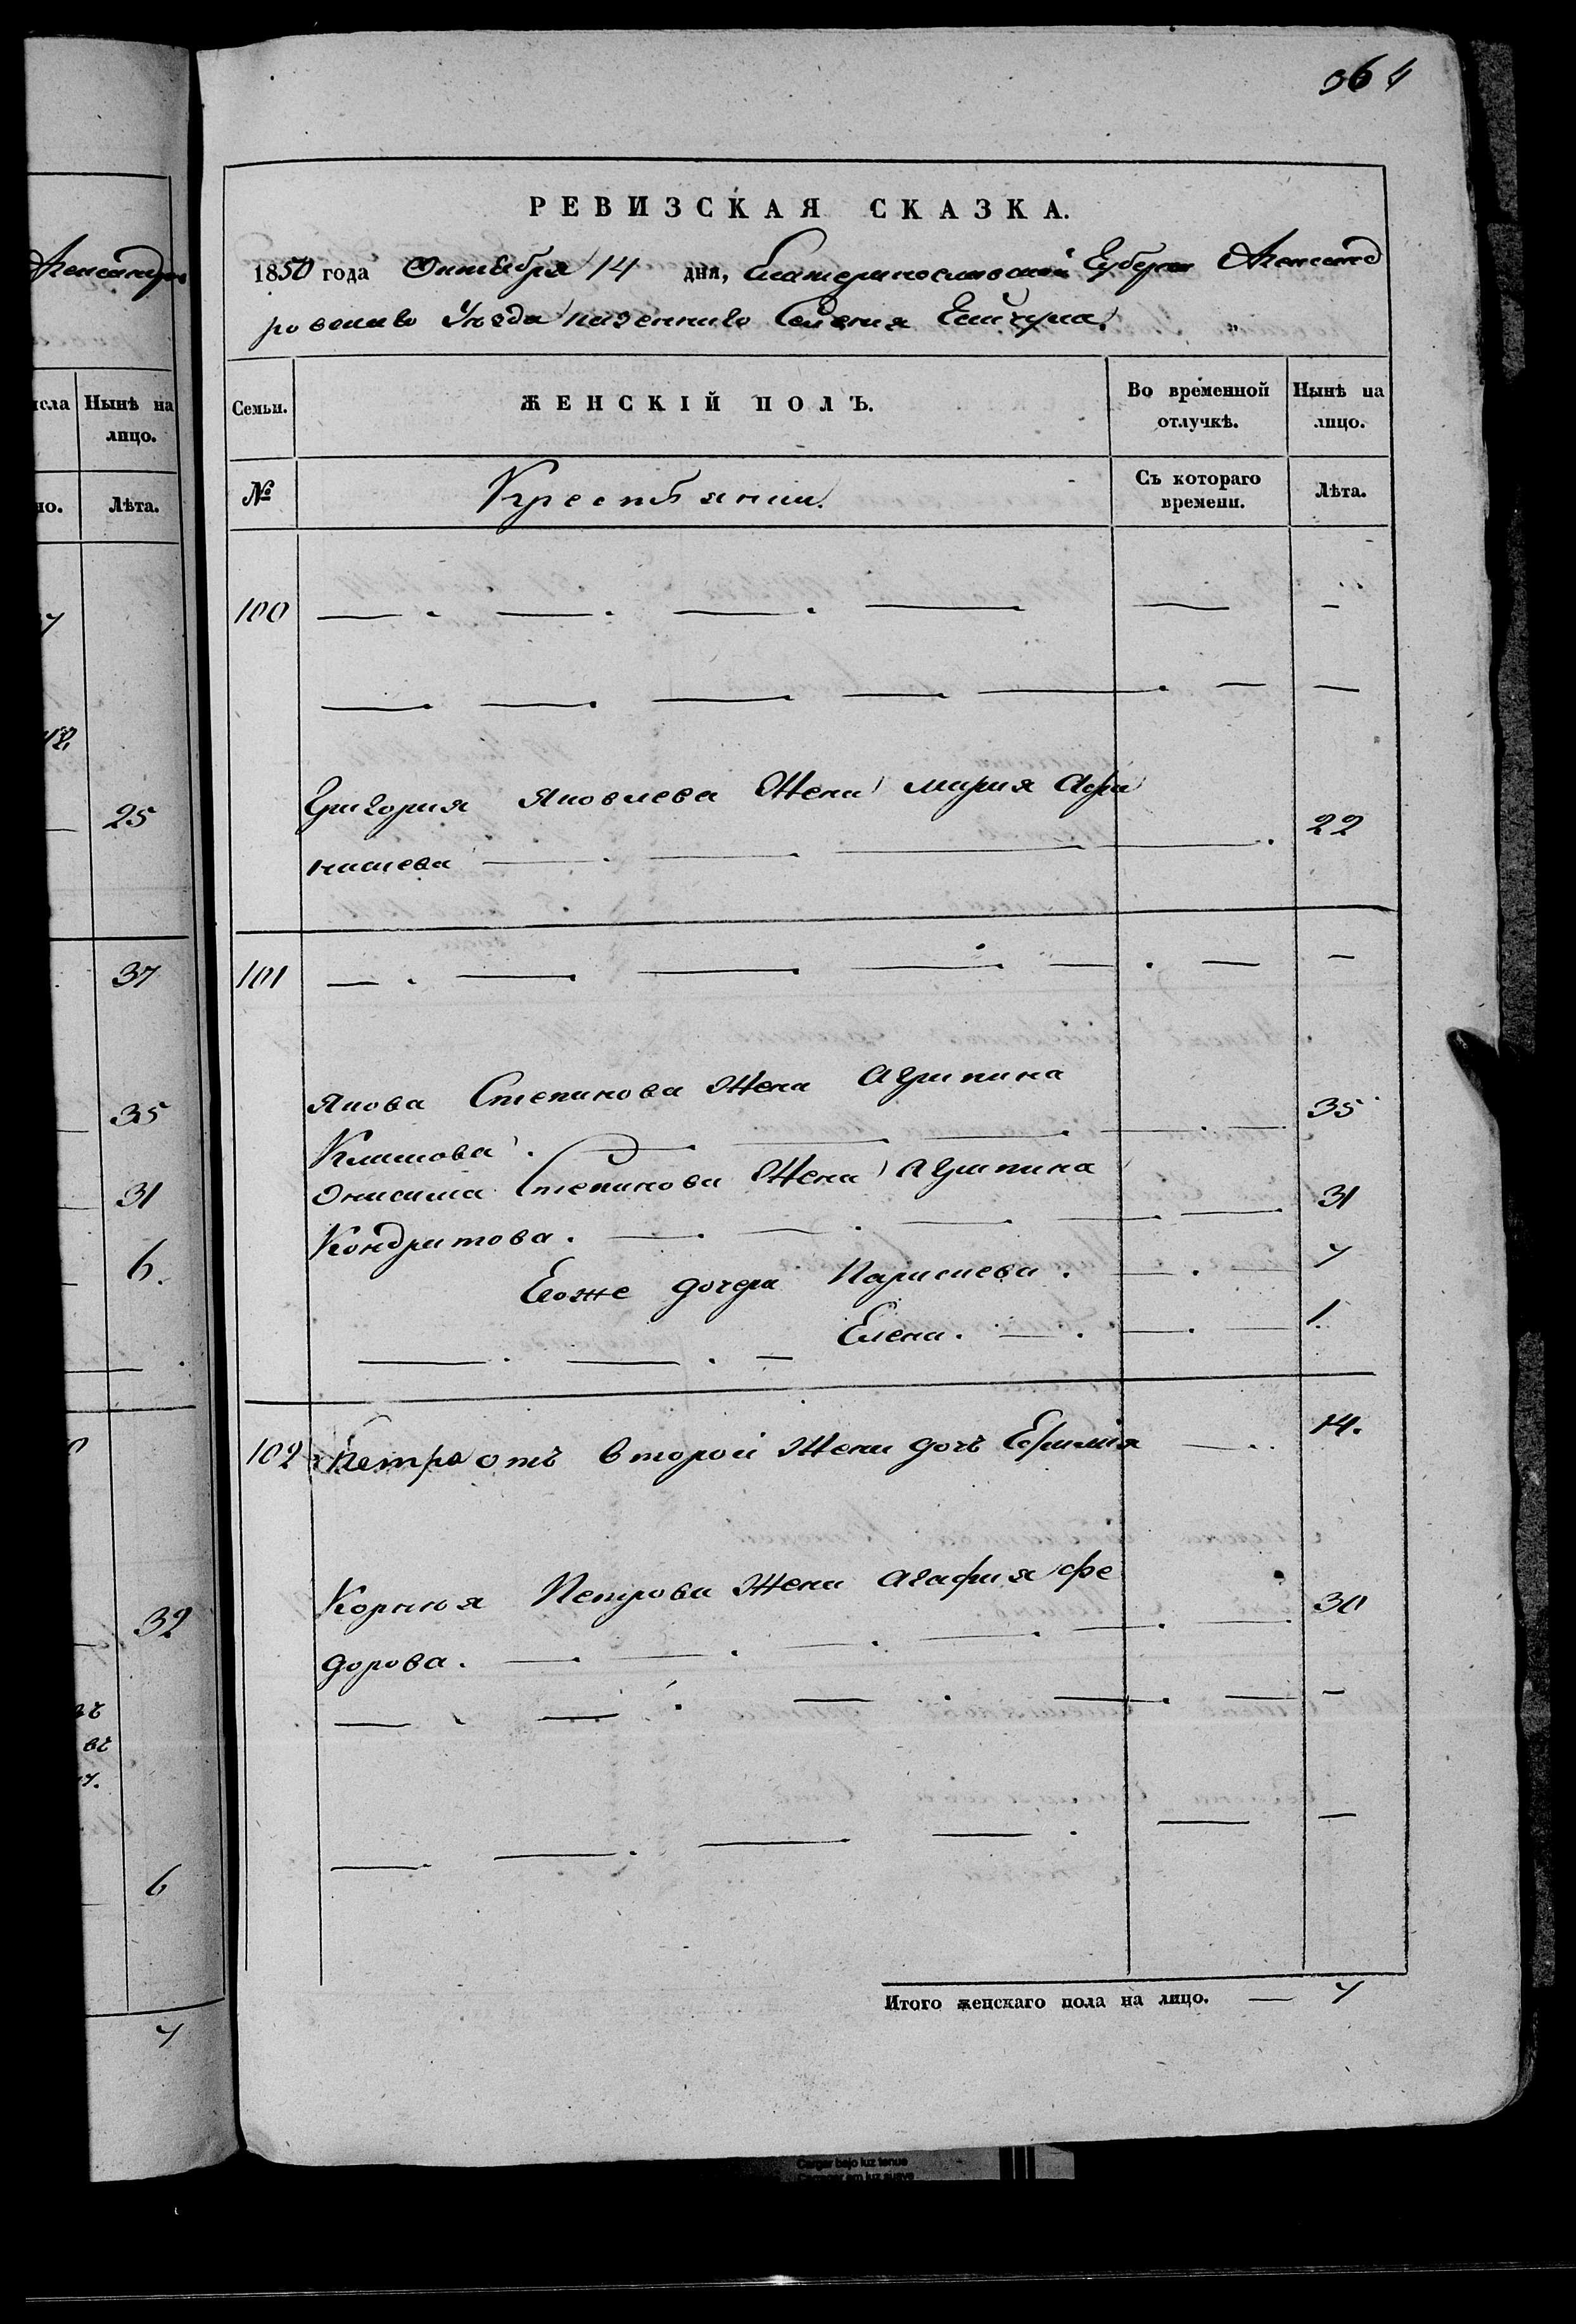 364
Александров
РЕВИЗСКАЯ СКАЗКА.
1850 года Октября 14 дня, Екатеринославской Губернии Александ
ровскаго Уезда казеннаго Селения
исла Нынѣ на лицо.
но. Лѣта.
Семьи. ЖЕНСКІЙ ПОЛЪ. Во временной отлучкѣ. Нынѣ на лицо.
№ Крестьянки. Съ котораго времени. Лѣта.
100
Григория Яковлева Жена Мария Афа
насиева 22
101
Якова Степанова Жена Агрипина
Климова 35
Онисима Степанова Жена Агрипина
Кондратова. 31
Егоже дочери Параскева. 7
Елена. 1.
102 Петра отъ второй Жены дочь Ефимия 14.
Корнея Петрова Жена Агафия Фе
дорова. 30
Итого женскаго пола на лицо. 7
25
37
35
31
6.
32
6
7